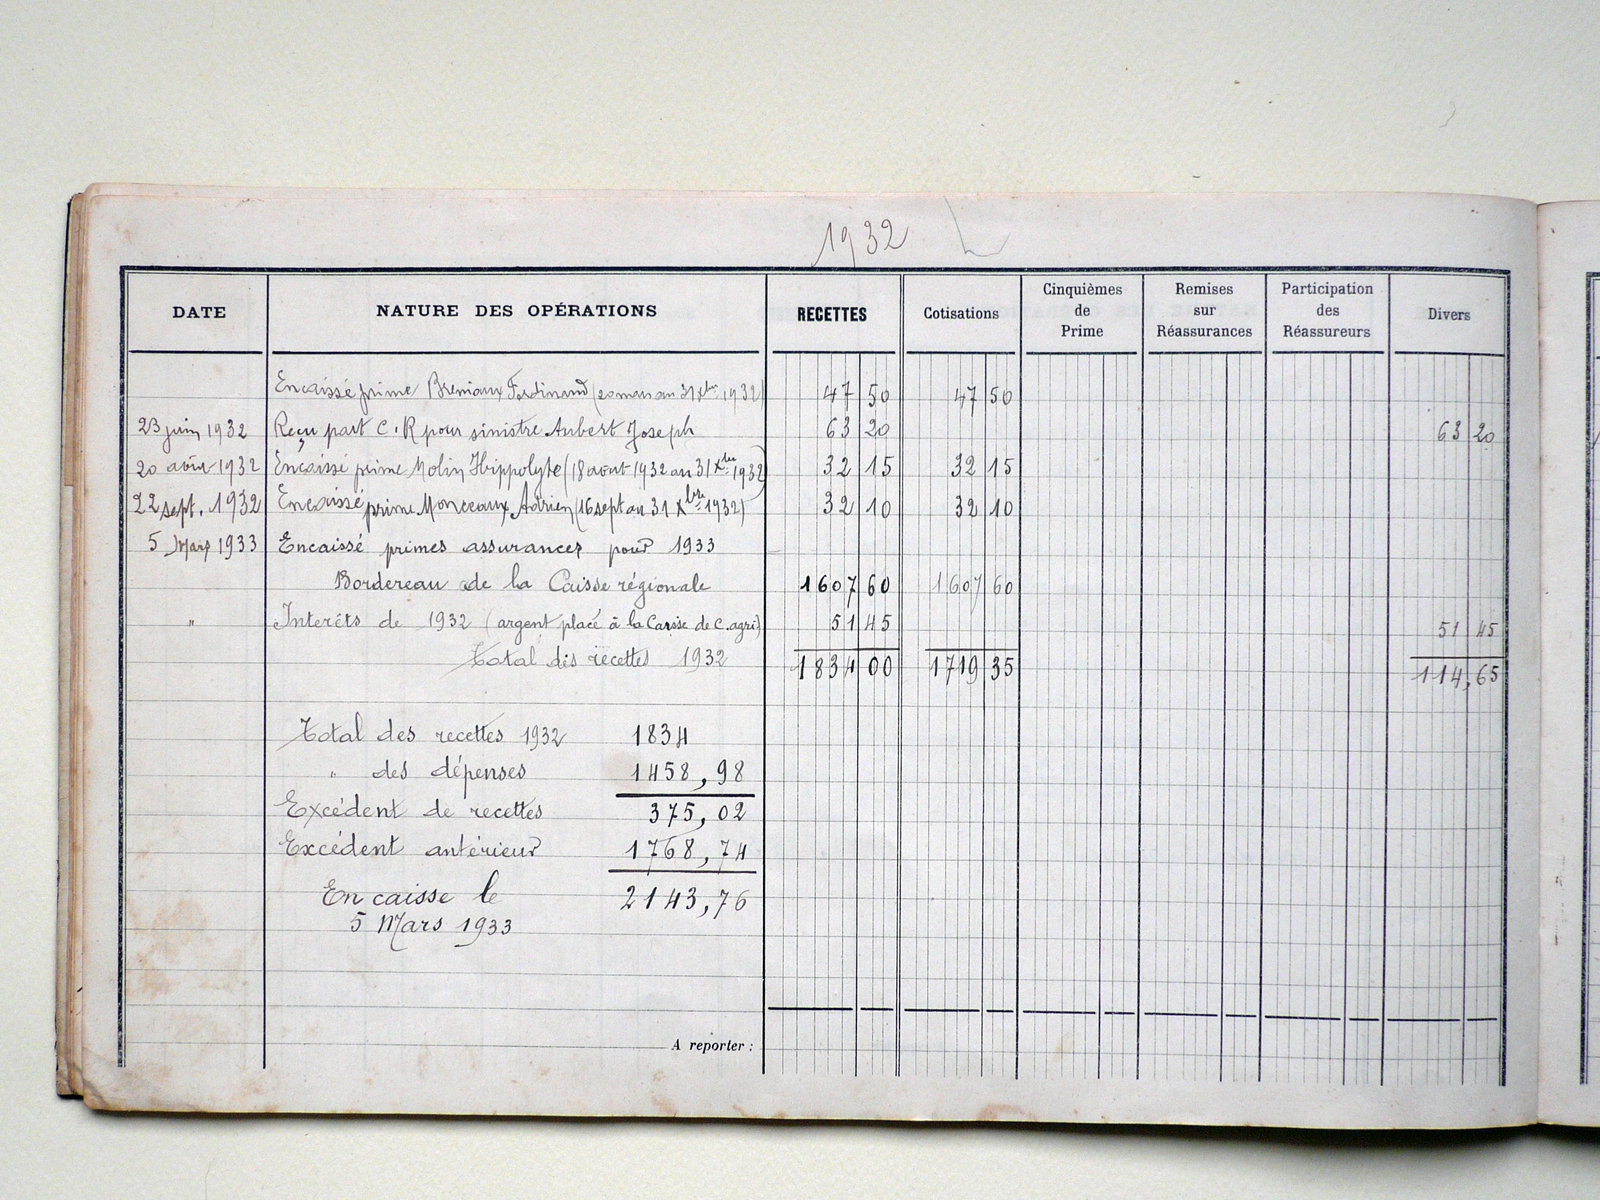 1932
DATE NATURE DES OPÉRATIONS RECETTES Cotisations Cinquièmes de Prime Remises sur Réassurances Participation des Réassureurs Divers
Encaissé prime Ferdinand ( au 31 Xbre 1932) 47 50 47 50
23 juin 1932 Reçu part C.R pour sinistre Aubert Joseph 63 20 63 20
20 août 1932 Encaissé prime Molin Hippolyte (18 aout 1932 au 31 Xbre 1932) 32 15 32 15
22 sept. 1932 Encaissé prime Monceaux Adrien (16 sept au 31 Xbre 1932) 32 10 32 10
5 Mars 1933 Encaissé primes assurances pour 1933
Bordereau de la Caisse régionale 1607 60 1607 60
" Interéts de 1932 (argent placé à la Caisse de C. agri) 51 45 51 45
Total des recettes 1932 1834 00 1719 35 114,65
Total des recettes 1932 1834
" des dépenses 1458,98
Excédent de recettes 375,02
Excédent antérieur 1768,74
En caisse le 2143,76
5 Mars 1933
A reporter :